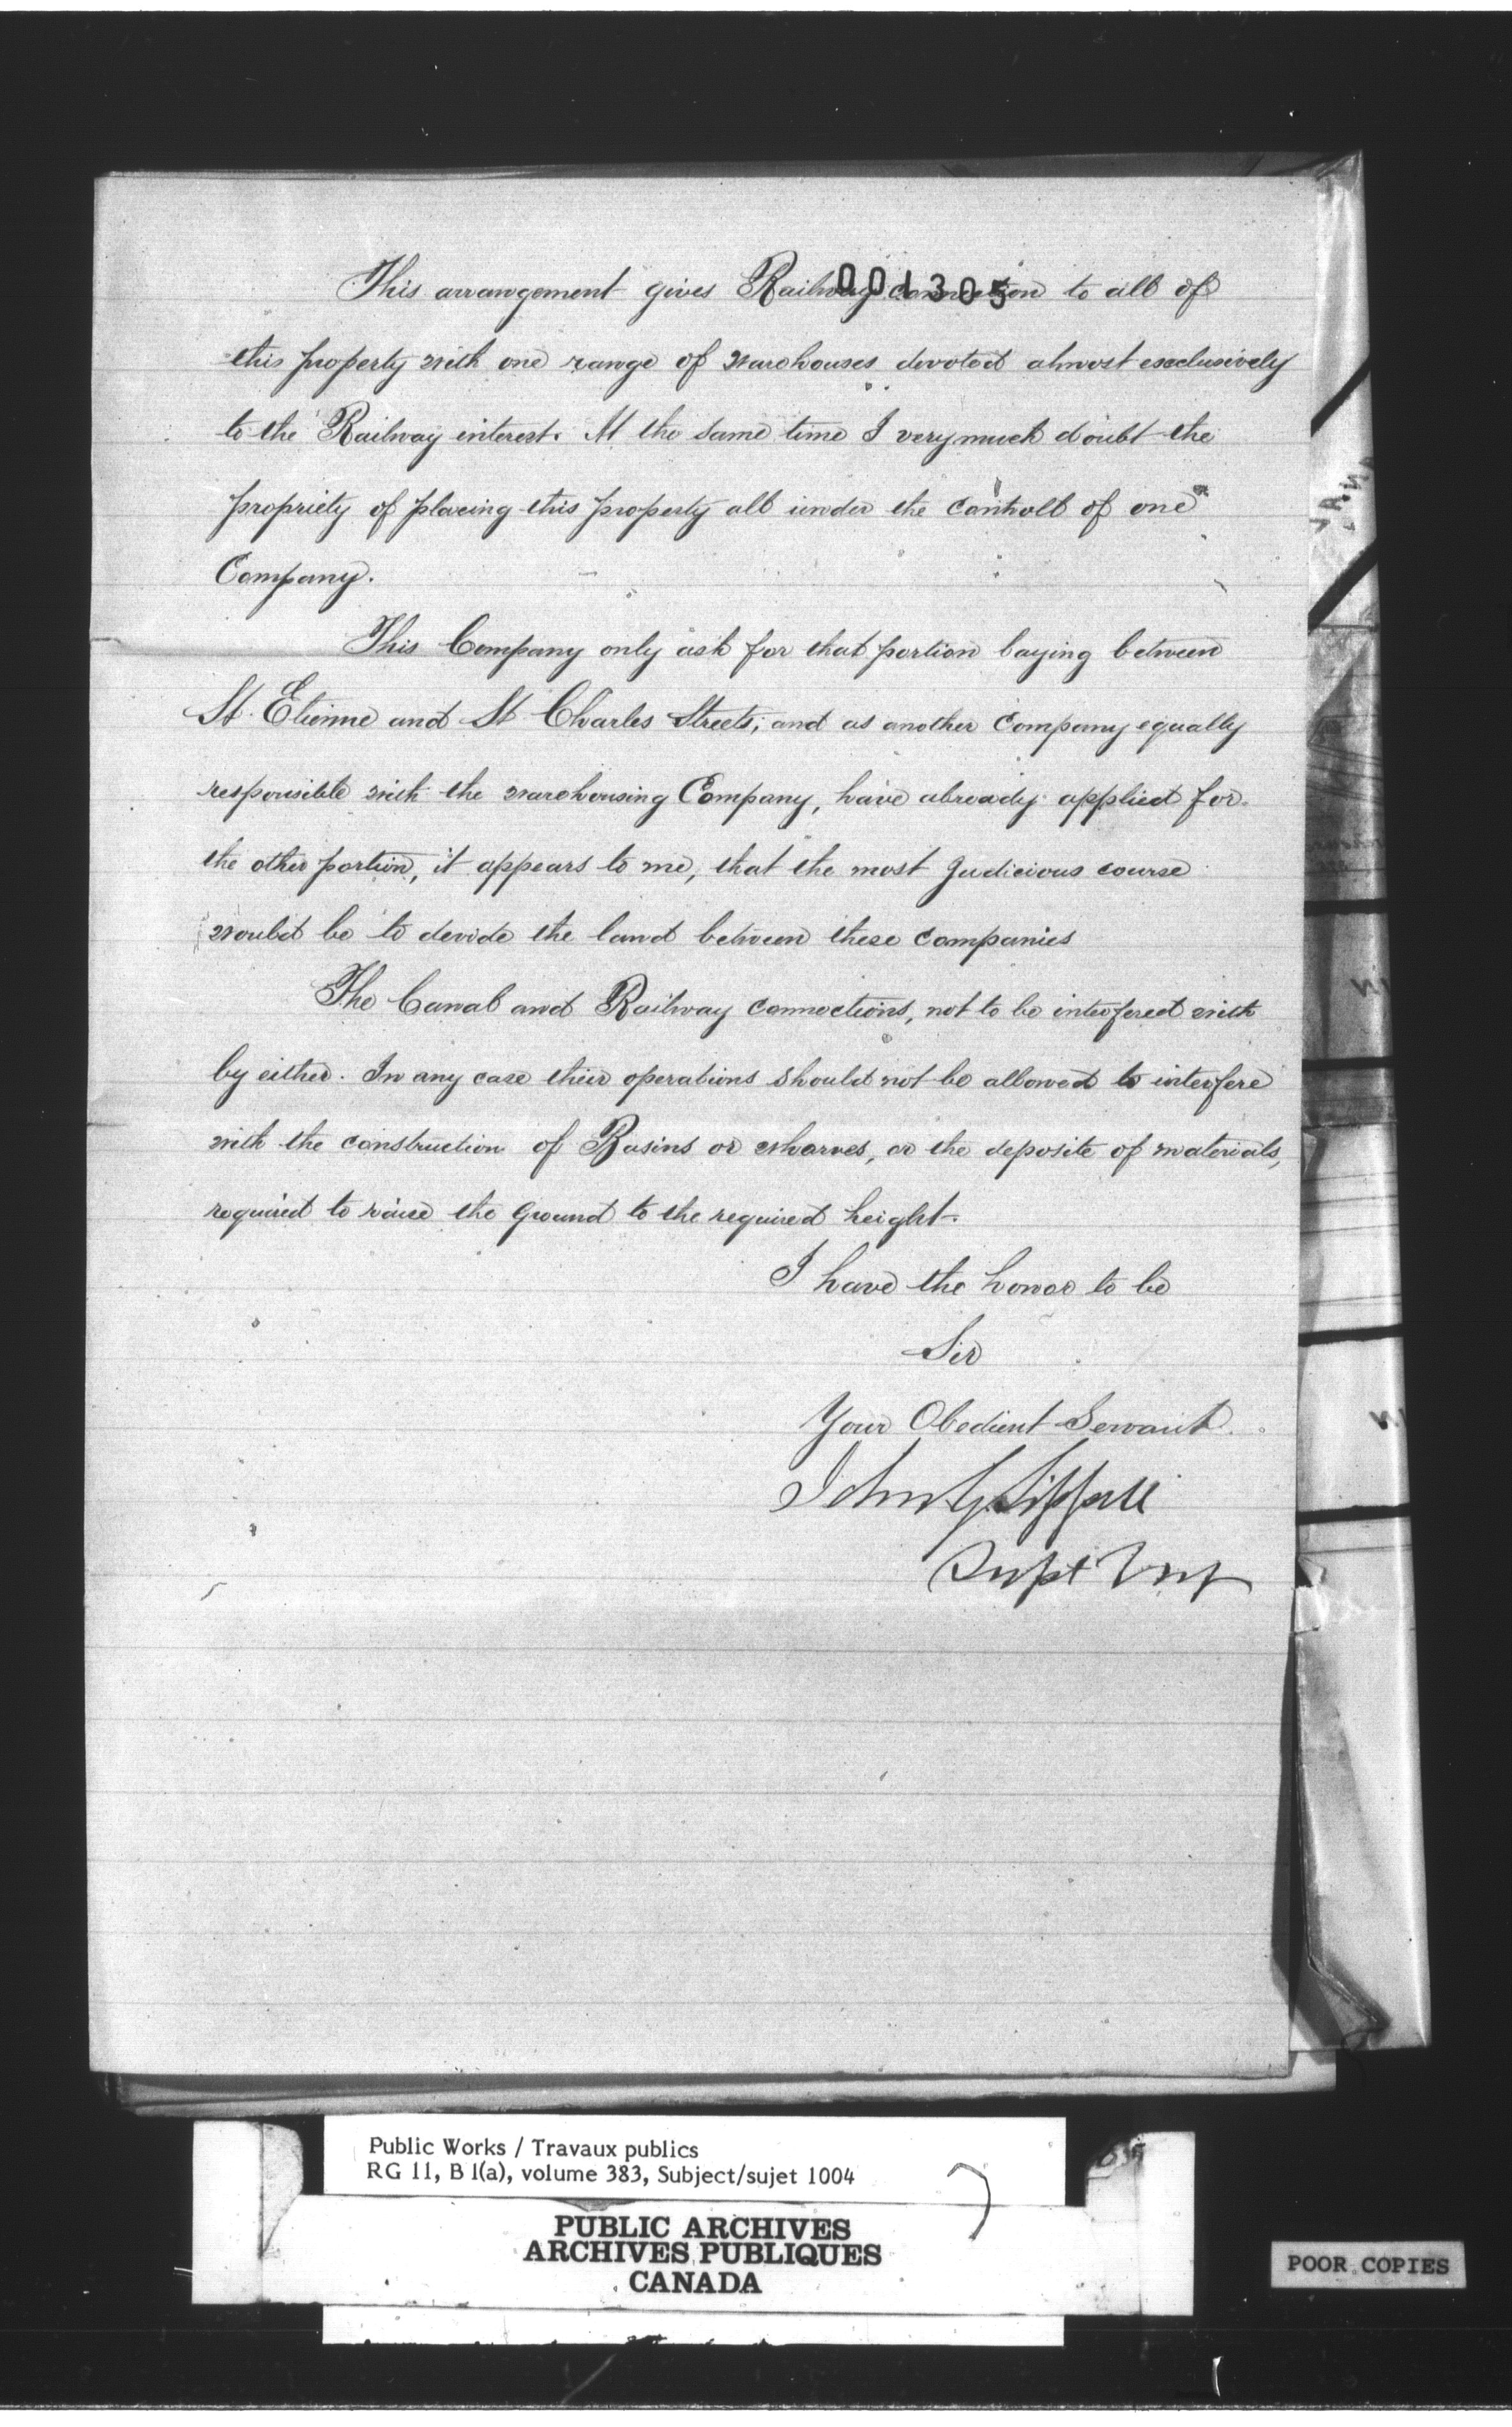 001305
This arrangement gives Railway connection to all of
this property with one range of warehouses devoted almost exclusively
to the Railway interest. At the same time I very much doubt the
propriety of placing this property all under the controll of one
Company.
This Company only ask for that portion laying between
St. Etienne and St Charles Streets; and as another Company equally
responsible with the warehousing Company, have already applied for
the other portion, it appears to me, that the most Judicious course
would be to devide the land between these Companies
The Canal and Railway connections, not to be interfered with
by either. In any case their operations should not be allowed to interfere
with the construction of Basins or wharves, or the deposite of materials,
required to raise the ground to the required height.
I have the honor to be
Sir
Your Obedient Servant.
John G Sippell
Supt Eng
Public Works / Travaux publics
RG 11, B 1(a), volume 383, Subject/sujet 1004
PUBLIC ARCHIVES
ARCHIVES PUBLIQUES
CANADA
POOR COPIES